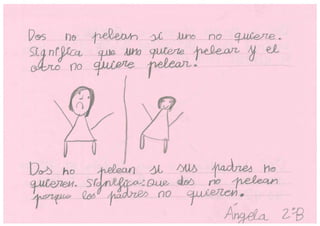 Dos no pelean si uno no quiere.
Significa que uno quiere pelear y el
otro no quiere pelear.
Dos no pelean si sus padres no
quieren. Significa: que dos no pelean
porque los padres no quieren.
Ángela 2ºB